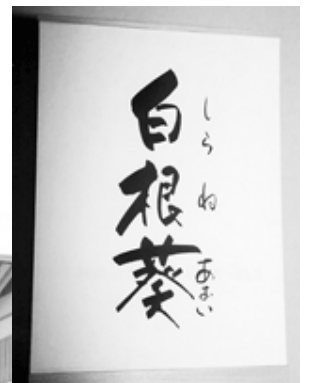 白根葵
しらねあおい